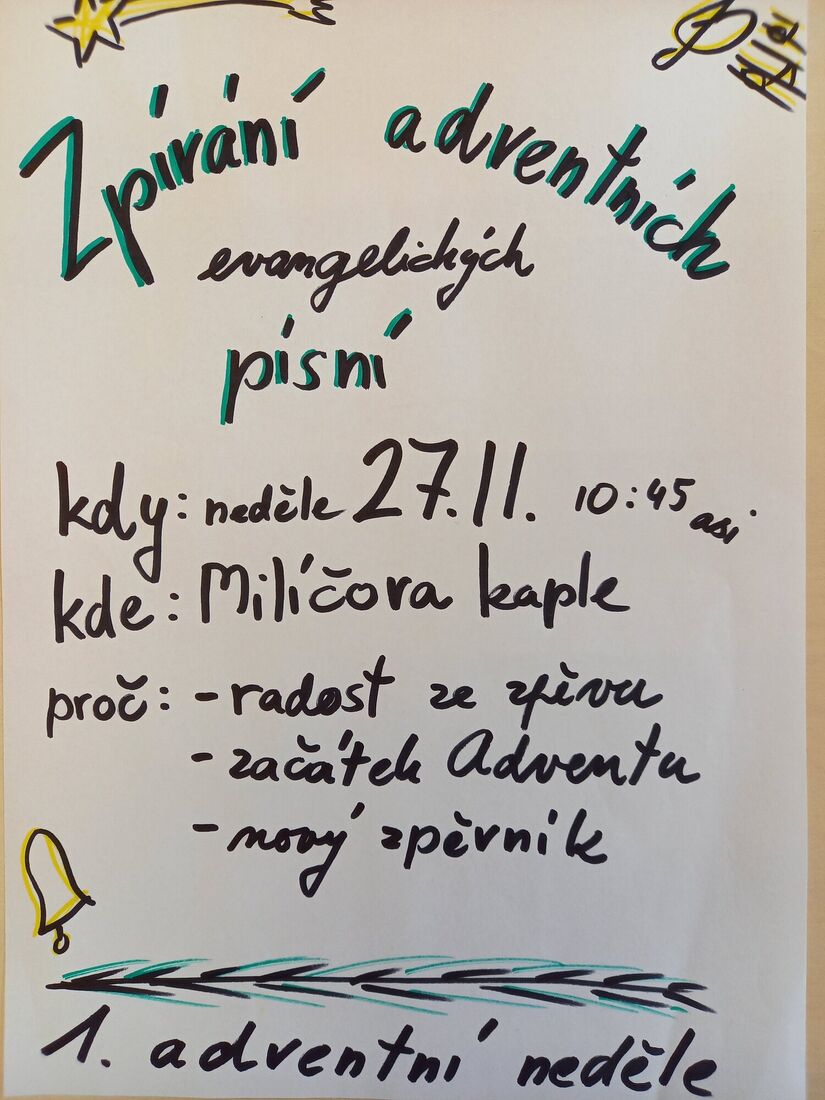 Zpívání adventních
evangelických
písní
kdy: neděle 27.11. 10:45 asi
kde: Milíčova kaple
proč: - radost ze zpěvu
- začátek Adventu
- nový zpěvník
1. adventní neděle